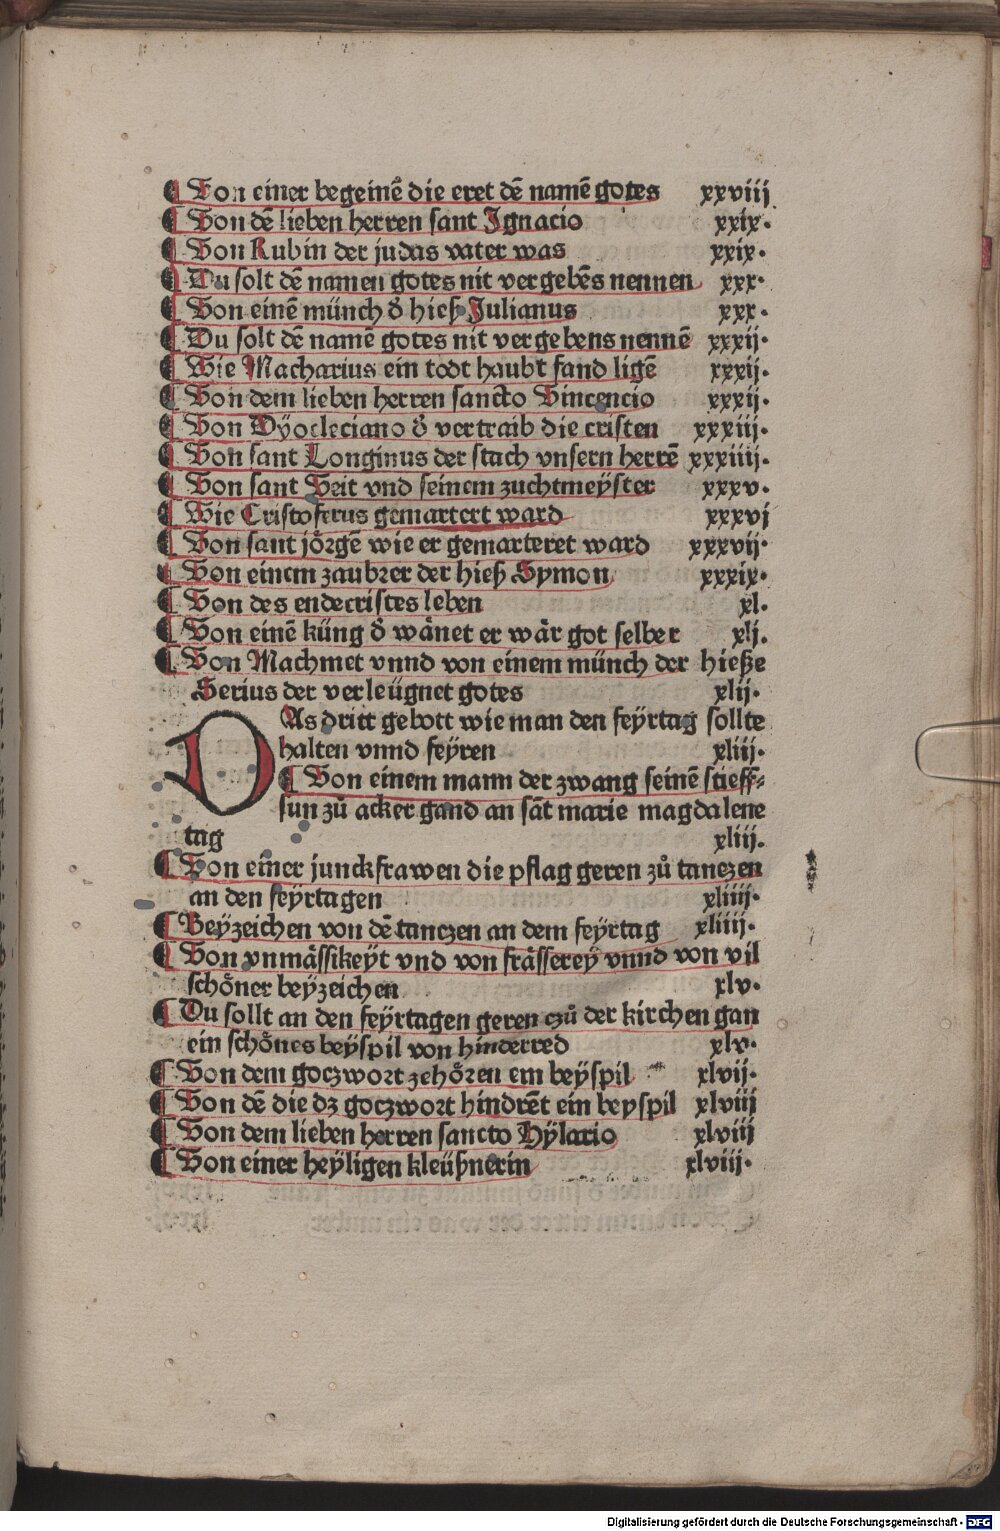 ¶ Von einer begeinē die eret dē namē gotes xxviij
¶ Von dē lieben herren sant Ignacio xxix.
¶ Von Rubin der judas vater was xxix.
¶ Du solt dē namen gotes nit vergebēs nennen xxx.
¶ Von einē münch d̓ hieß Julianus xxx.
¶ Du solt dē namē gotes nit vergebens nennē xxxij.
¶ Wie Macharius ein todt haubt fand ligē xxxij.
¶ Von dem lieben herren sancto Vincencio xxxij.
¶ Von Dÿocleciano d̓ vertraib die cristen xxxiij.
¶ Von sant Longinus der stach vnsern herrē xxxiiij.
¶ Von sant Veit vnd seinem zuchtmeÿster xxxv.
¶ Wie Cristoferus gemartert ward xxxvj
¶ Von sant jörgē wie er gemarteret ward xxxvij.
¶ Von einem zaubrer der hieß Symon xxxix.
¶ Von des endecristes leben xl.
¶ Von einē küng d̓ wänet er wär got selber xlj.
¶ Von Machmet vnnd von einem münch der hieße
Serius der verleügnet gotes xlij.
DAs dritt gebott wie man den feÿrtag sollte
halten vnnd feÿren xliij.
¶ Von einem mann der zwang seinē stieff⸗
sun zů acker gand an sāt marie magdalene
tag xliij.
¶ Von einer junckfrawen die pflag geren zů tanczen
an den feÿrtagen xliiij.
¶ Beÿzeichen von dē tanczen an dem feÿrtag xliiij.
¶ Von vnmässikeÿt vnd von frässereÿ vnnd von vil
schöner beÿzeichen xlv.
¶ Du sollt an den feÿrtagen geren czů der kirchen gan
ein schönes beÿspil von hinderred xlv.
¶ Von dem goczwort zehören ein beÿspil xlvij.
¶ Von dē die dz goczwort hindrēt ein beyspil xlviij
¶ Von dem lieben herren sancto Hÿlario xlviij
¶ Von einer heÿligen kleüßnerin xlviij.
Digitalisierung gefördert durch die Deutsche Forschungsgemeinschaft - DFG